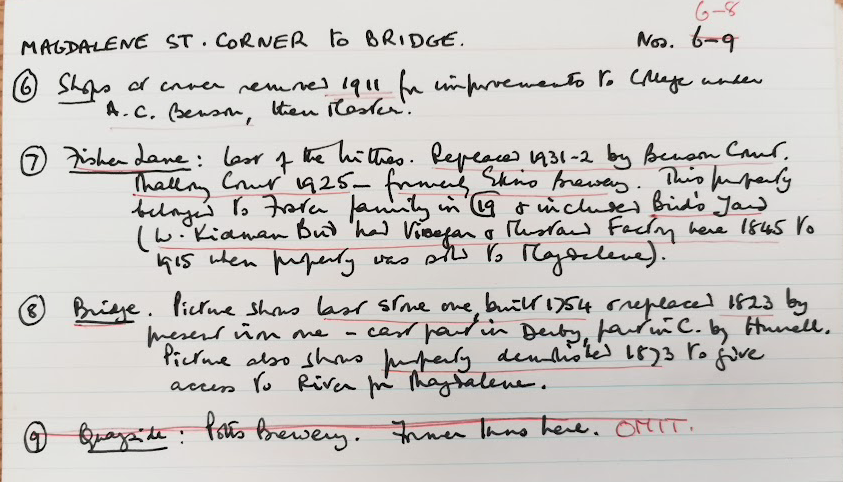 6-8
MAGDALENE ST. CORNER to BRIDGE. Nos. 6-9
⑥ Shops at corner removed 1911 for improvements to College under
A.C. Benson, then Master.
⑦ Fisher Lane: last of the hithes. Replaced 1931-2 by Benson Court.
Mallory Court 1925 - formerly Ekins Brewery. This property
belonged to Foster family in 19 & included Bird's Yard
(W. Kidman Bird had Vinegar & Mustard Factory here 1845 to
1915 when property was sold to Magdalene).
⑧ Bridge. Picture shows last stone one, built 1754 & replaced 1823 by
present iron one - cast part in Derby, part in C. by Hurrell.
Picture also shows property demolished 1873 to give
access to River for Magdalene.
⑨ Quayside: Potts Brewery. Former Inns here. OMIT.